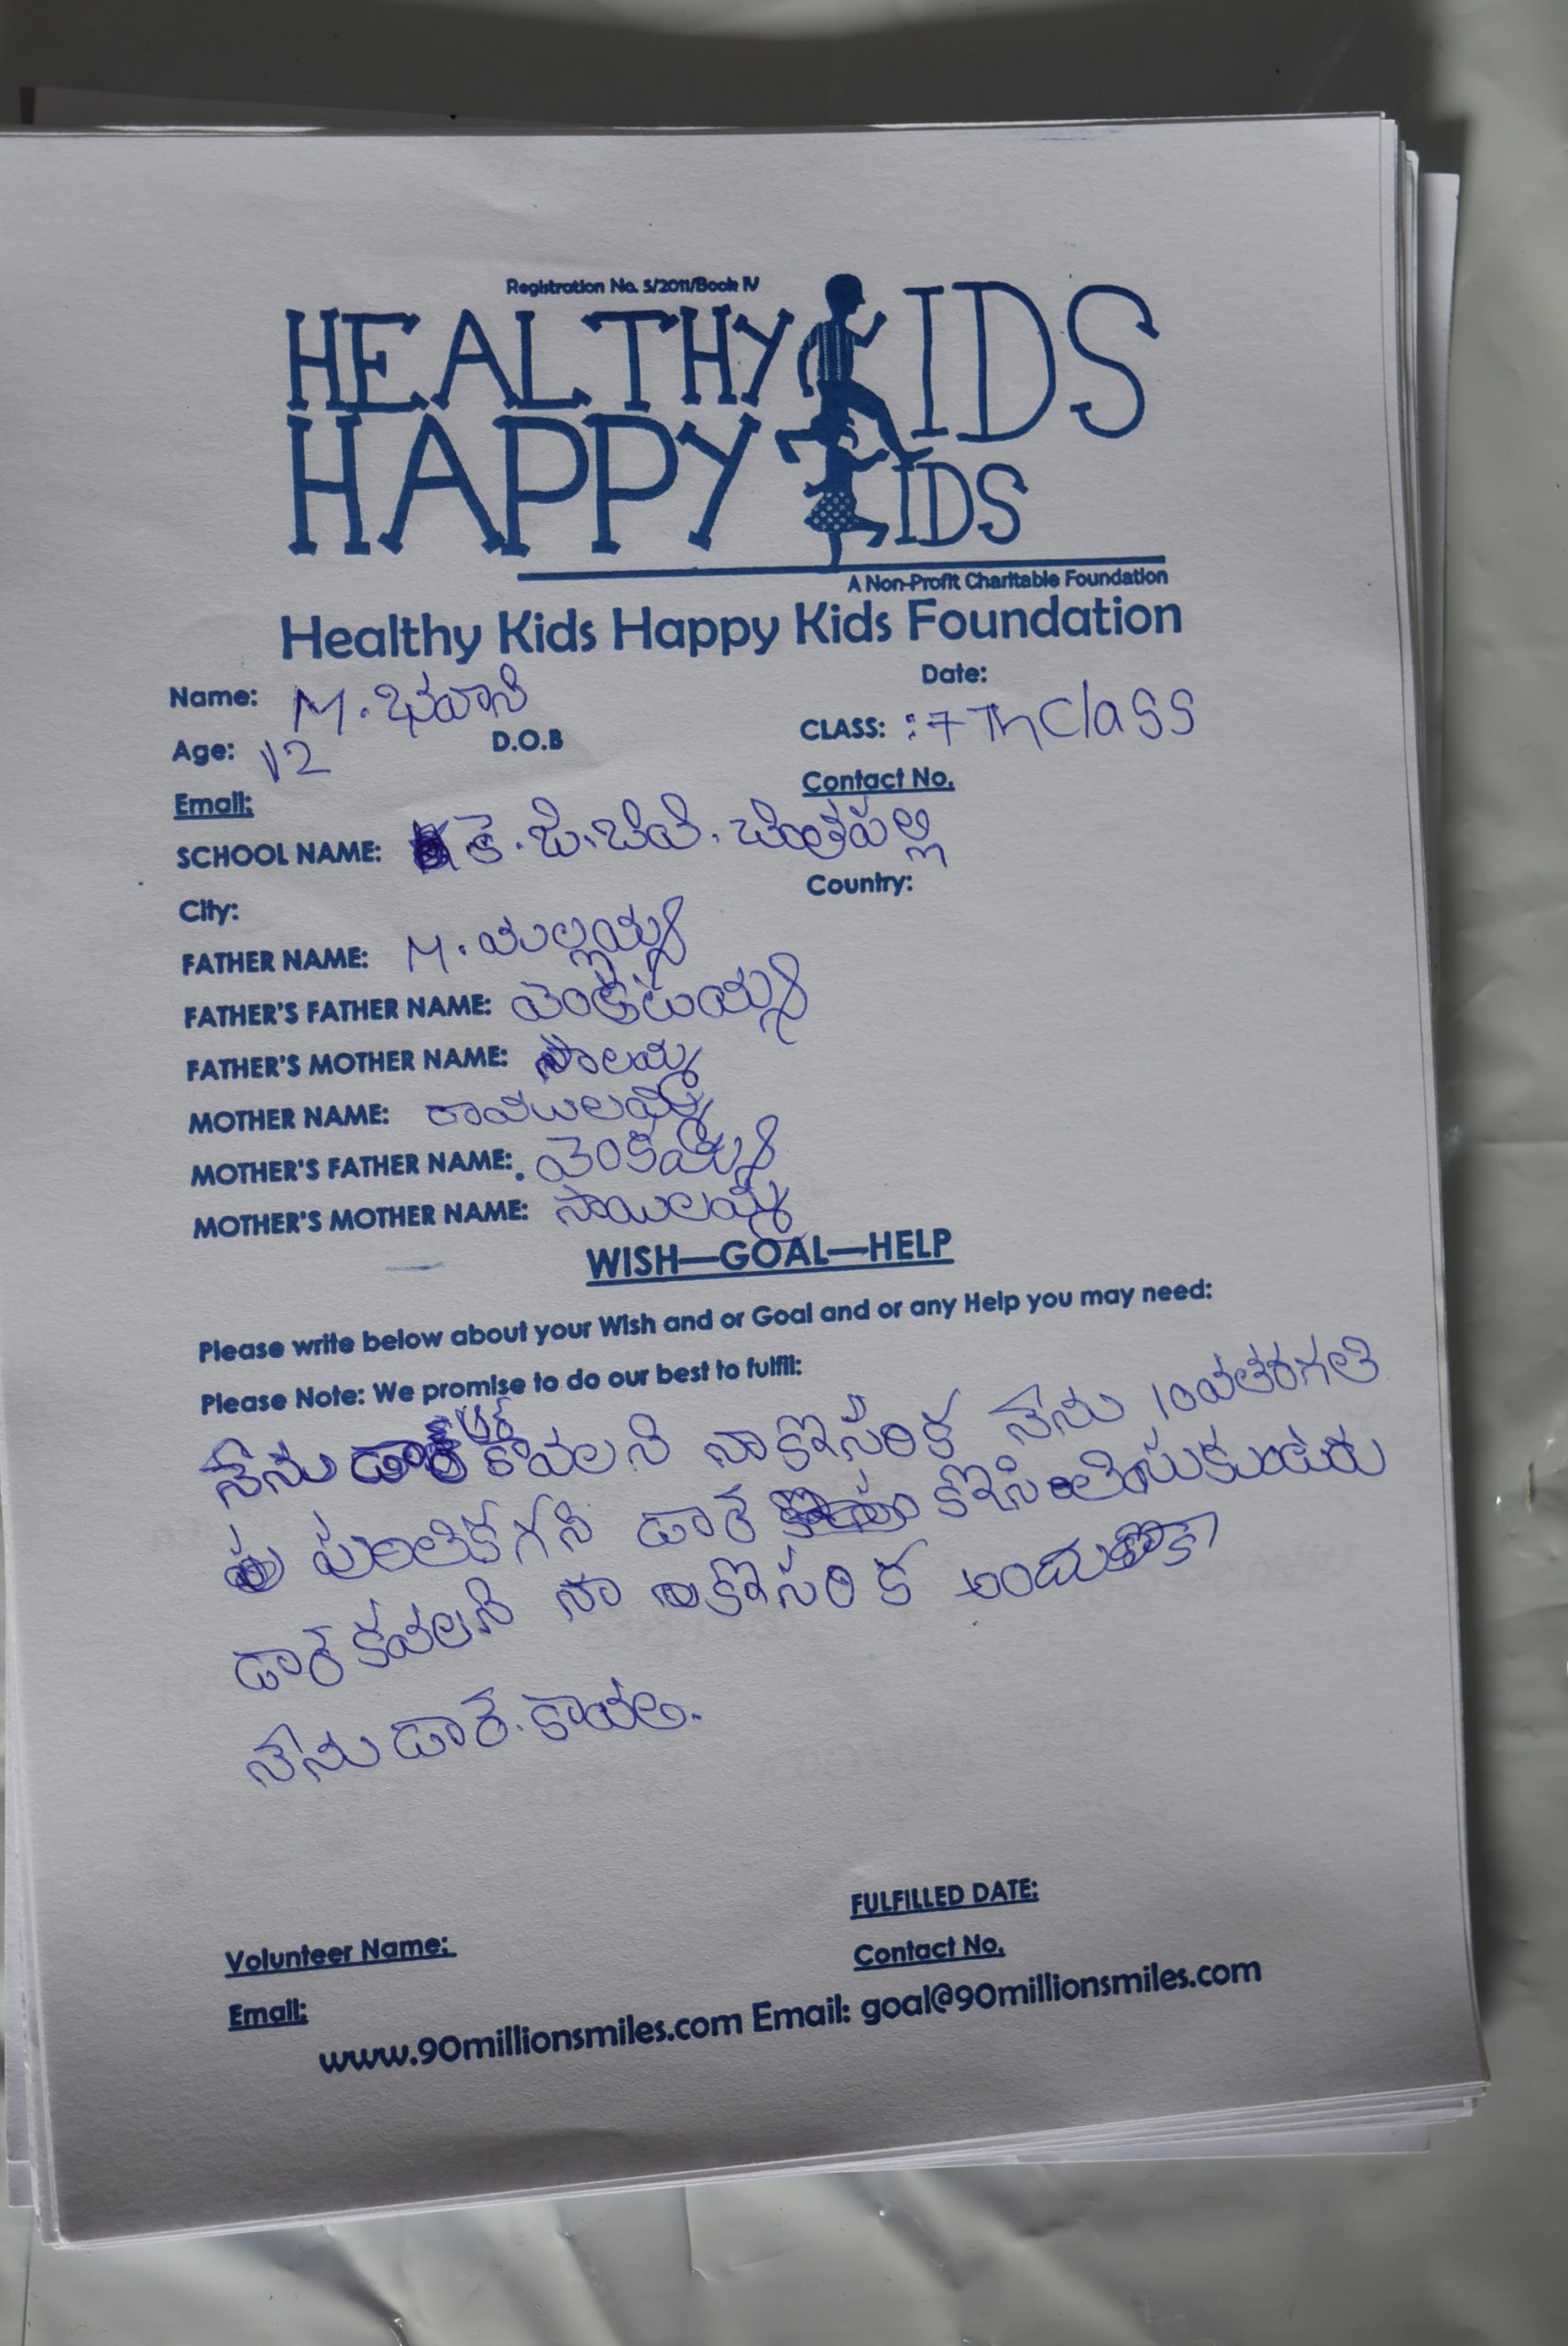 Registration No. 5/2011/Book IV
HEALTHY KIDS
HAPPY KIDS
A Non-Profit Charitable Foundation
Healthy Kids Happy Kids Foundation
Name: M. భవాని Date:
Age: 12 D.O.B CLASS: : 7 Th Class
Email: Contact No.
SCHOOL NAME: కె. జి. బివి. చింతపల్లి
City: Country:
FATHER NAME: M. మల్లయ్య
FATHER'S FATHER NAME: వెంకటయ్య
FATHER'S MOTHER NAME: సాలమ్మ
MOTHER NAME:
MOTHER'S FATHER NAME: వెంకయ్య
MOTHER'S MOTHER NAME: సాయిలమ్మ
WISH—GOAL—HELP
Please write below about your Wish and or Goal and or any Help you may need:
Please Note: We promise to do our best to fulfil:
నేను కావలని నా కొసరిక నేను 10వతరగతి
డారె
డారె కవలని నా కొసరిక
నేను డారె. కావలి.
FULFILLED DATE:
Volunteer Name: Contact No.
Email:
www.90millionsmiles.com Email: goal@90millionsmiles.com